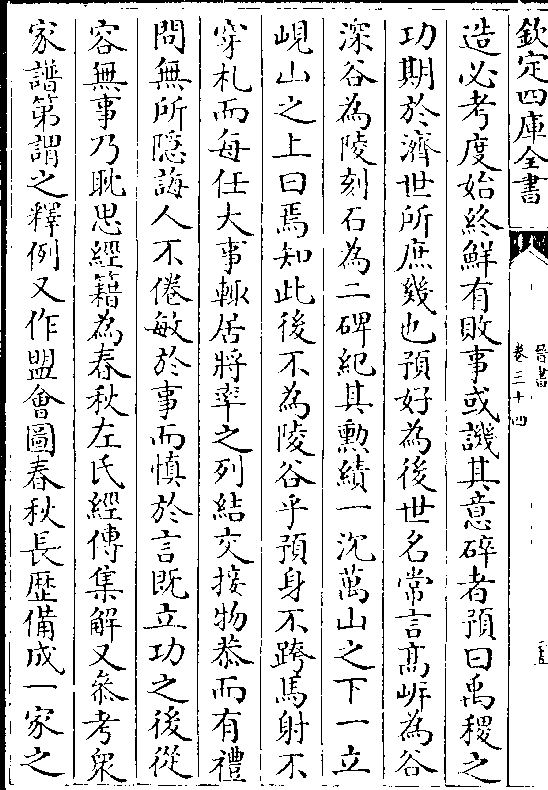 欽定四庫全書
晉書
卷三十四
造必考度始終鮮有敗事或譏其意碎者預曰禹稷之
功期於濟世所庶幾也預好為後世名常言髙岸為谷
深谷為陵刻石為二碑紀其勲績一沉萬山之下一立
峴山之上曰焉知此後不為陵谷乎預身不跨馬射不
穿札而每任大事輙居將率之列結交接物恭而有禮
問無所隠誨人不倦敏於事而慎於言既立功之後從
容無事乃耽思經籍為春秋左氏經傳集解又叅考衆
家譜第謂之釋例又作盟會圖春秋長歴備成一家之